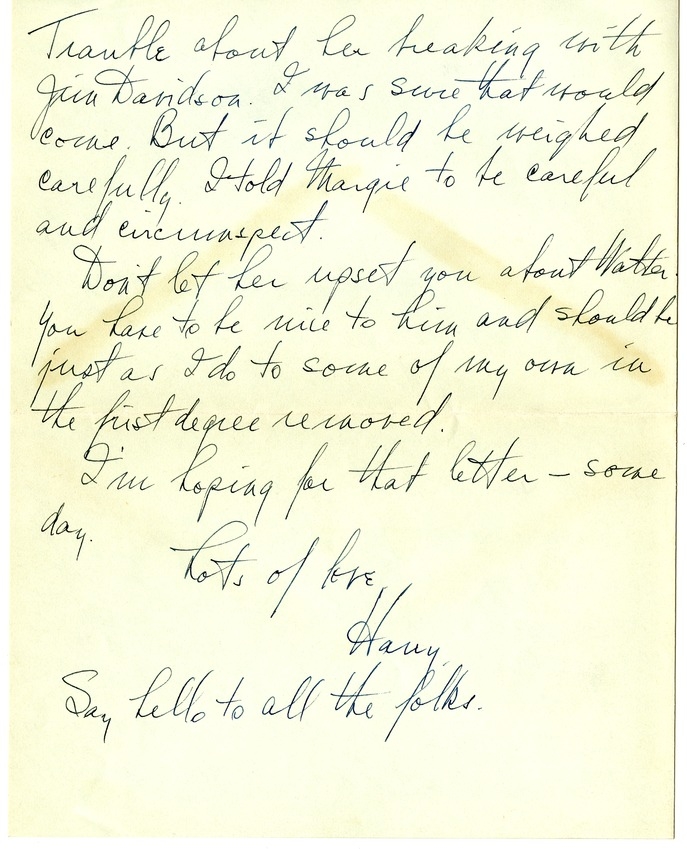 Trouble about her breaking with
Jim Davidson. I was sure that would
come. But it should be weighed
carefully. I told Margie to be careful
and circumspect.
Don't let her upset you about Walter.
You have to be nice to him and should be
just as I do to some of my own in
the first degree removed.
I'm hoping for that letter – some
day.
Lots of love,
Harry
Say hello to all the folks.